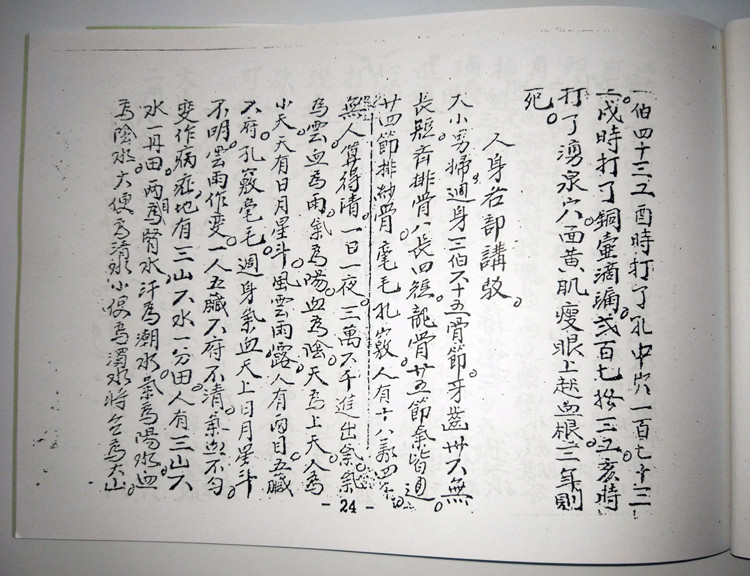 一伯四十三工酉時打了乳中穴一百七十三
工。戌時打了銅壺滴漏弍百七拾三工。亥時
打了湧泉穴面黃肌瘦眼上起血根。三年則
死。
人身各部講敎。
大小男婦週身三伯六十五骨節。牙齒卅六無
長短。脊排骨八長四短。龍骨廿五節氣皆通。
廿四節排紗骨毫毛孔竅人有十八萬四千。
無人算得清。一日一夜三萬六千進出氣。氣
為雲血為雨。氣為陽血為陰。天為上天人為
小天。天有日月星斗風雲雨露。人有両目五臟
六府孔竅毫毛。週身氣血天上日月星斗
不明。雲雨作变。一人五臟六府不清。氣血不勻
变作病症。地有三山六水一分田。人有三山六
水一丹田。両為腎水。汗為潮水。氣為陽水。血
為陰水。大便為清水。小便為濁水。將台為大山
- 24 -